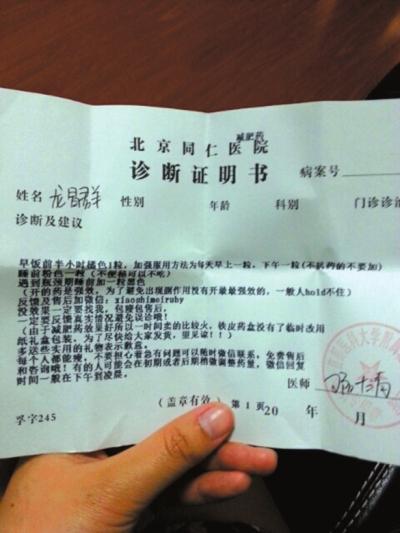 减肥药
北京同仁医院
诊断证明书 病案号
姓名 性别 年龄 科别 门诊诊治
诊断及建议
早饭前半小时橘色1粒，加强服用方法为每天早上一粒，下午一粒(不抗药的不要加)
睡前粉色一粒(不便秘可以不吃)
遇到瓶颈期睡前加一粒黑色
(开的药是强效，为了避免出现副作用没有开最最强效的，一般人hold不住)
反馈及售后加微信：xiaoshimeiruby
没效果一定要找我，包瘦包售后，
一定要反馈真实情况避免误诊哦！
(由于减肥药效果好所以一时间卖的比较火，铁皮药盒没有了临时改用
纸礼盒包装，为了尽快给大家发货，里见谅！！)
多送些实用的礼物表示歉意，
每个人都能瘦，不要担心着急有问题可以随时微信联系，免费售后
和咨询哦！有的人可能会在初期或者后期稍微调整药量，微信回复
时间一般在下午到凌晨，
医师
(盖章有效) 第1页 20 年 月
字245